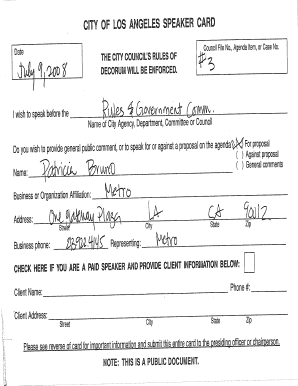 CITY OF LOS ANGELES SPEAKER CARD
Date
July 9, 2008
THE CITY COUNCIL'S RULES OF
DECORUM WILL BE ENFORCED.
Council File No., Agenda Item, or Case No.
#3
I wish to speak before the Rules & Government Comm.
Name of City Agency, Department, Committee or Council
Do you wish to provide general public comment, or to speak for or against a proposal on the agenda? (X) For proposal
( ) Against proposal
( ) General comments
Name: Patricia Bruno
Business or Organization Affiliation: Metro
Address: One Gateway Plaza LA CA 90012
Street City State Zip
Business phone: Representing: Metro
CHECK HERE IF YOU ARE A PAID SPEAKER AND PROVIDE CLIENT INFORMATION BELOW:
Client Name: Phone #:
Client Address:
Street City State Zip
Please see reverse of card for important information and submit this entire card to the presiding officer or chairperson.
NOTE: THIS IS A PUBLIC DOCUMENT.